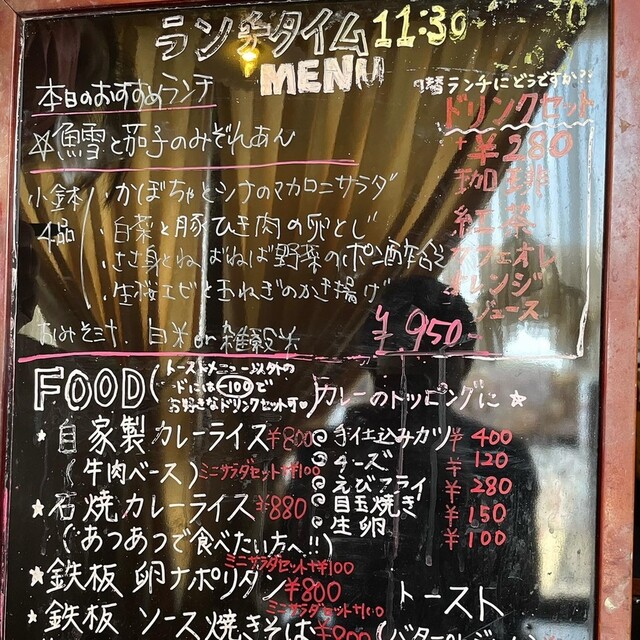 ランチタイム 11:30
MENU
本日のおすすめランチ
☆鱈と茄子のみぞれあん
小鉢 4品
・かぼちゃとツナのマカロニサラダ
・白菜と豚ひき肉の卵とじ
・ささ身とねばねば野菜のポン酢合え
・生桜エビと玉ねぎのかき揚げ
おみそ汁. 白米or雑穀米
¥950-
ランチにどうですか?!
ドリンクセット
+¥280
珈琲
紅茶
カフェオレ
オレンジ
ジュース
FOOD
(トーストメニュー以外の
ードには-100で
お好きなドリンクセット可♥)
★自家製カレーライス ¥800
(牛肉ベース) ミニサラダセット+¥100
★石焼カレーライス ¥880
(あつあつで食べたい方へ!!)
ミニサラダセット+¥100
★鉄板 卵ナポリタン ¥800
ミニサラダセット+¥100
★鉄板 ソース焼きそば ¥800
カレーのトッピングに☆
手仕込みカツ ¥400
チーズ ¥120
えびフライ ¥280
目玉焼き ¥150
生卵 ¥100
トースト